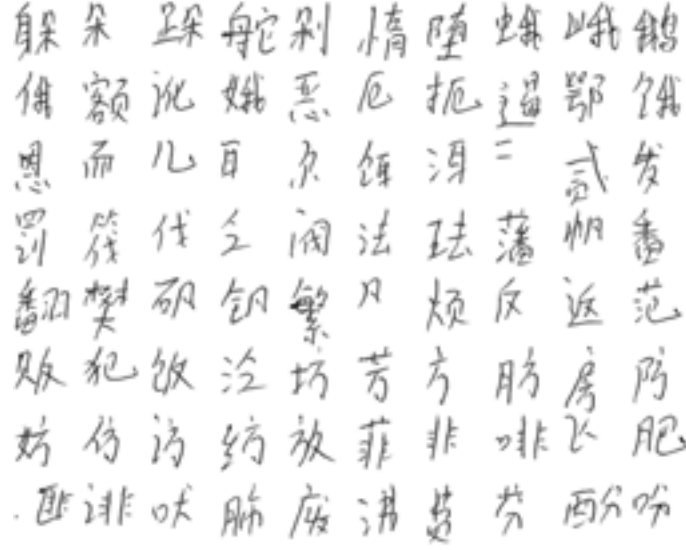 躲朵跺舵剁惰堕蛾峨鹅
俄额讹娥恶厄扼遏鄂饿
恩而儿耳尔饵洱二贰发
罚筏伐乏阀法珐藩帆番
翻樊矾钒繁凡烦反返范
贩犯饭泛坊芳方肪房防
妨仿访纺放菲非啡飞肥
匪诽吠肺废沸费芬酚吩